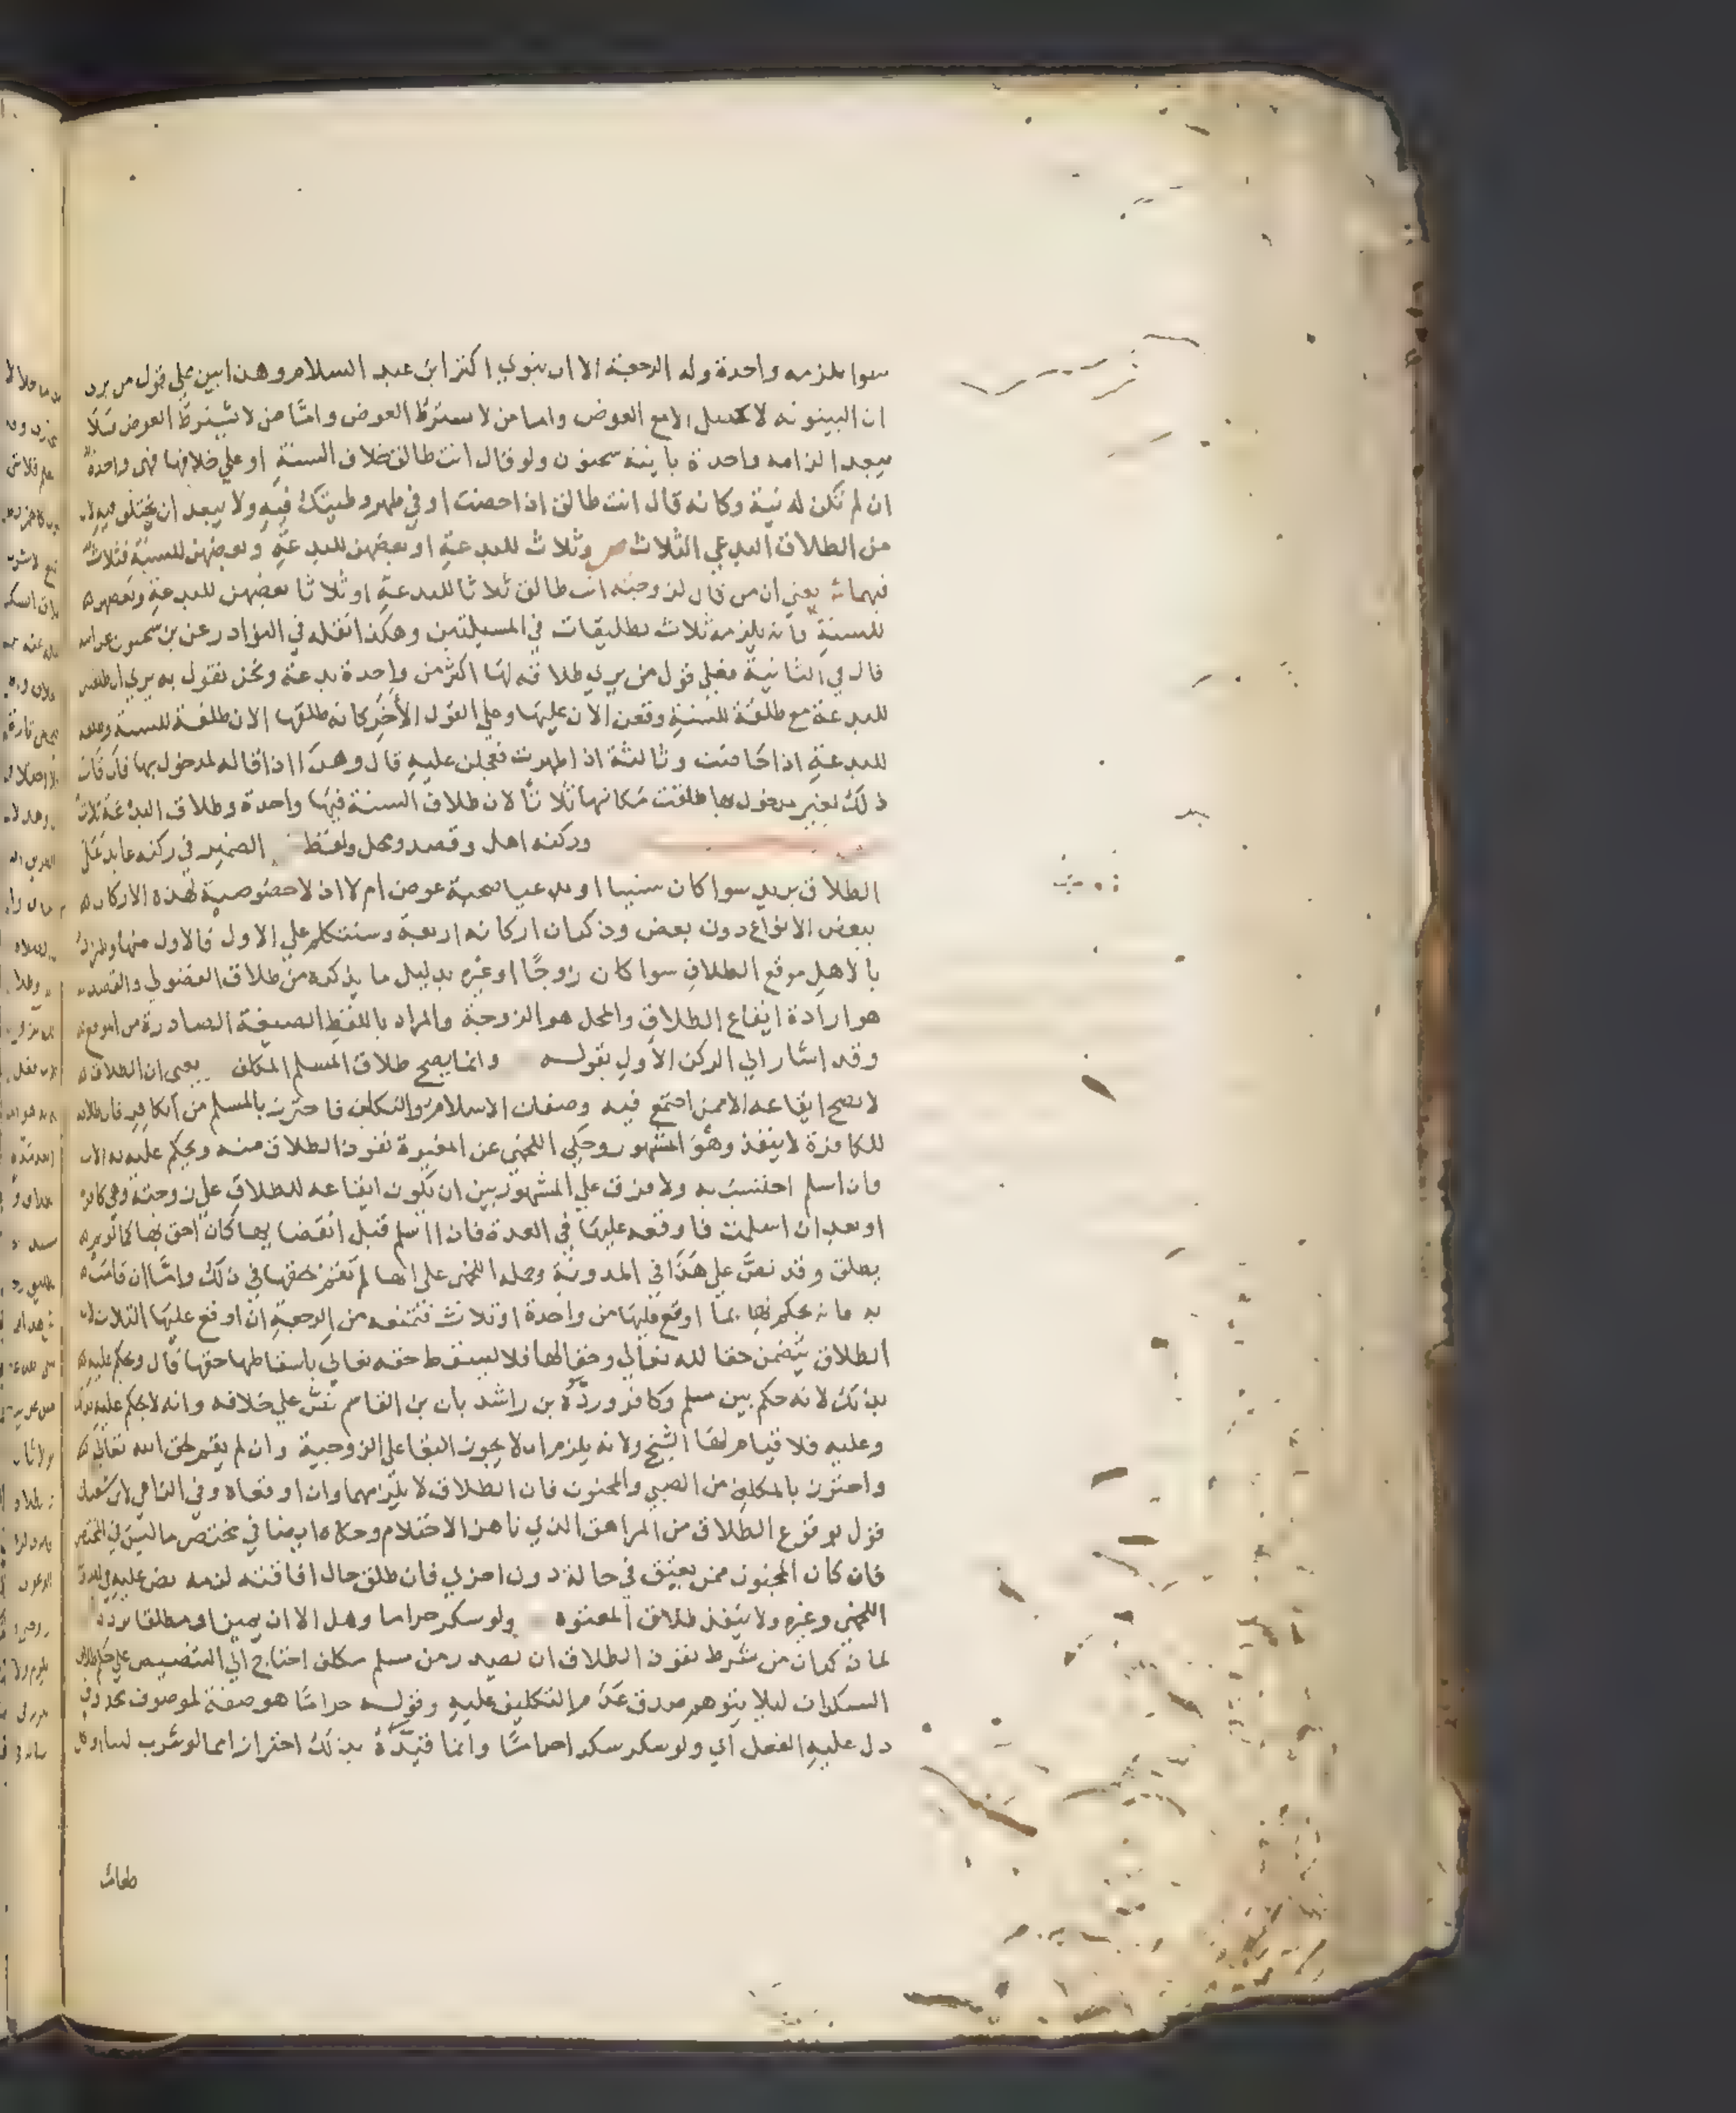 سوا يلزمه واحدة وله الرجعة الا ان ينوي اكثر ابن عبد السلام وهذا بين على قول من يرى
ان البينونه لا تحصل الا مع العوض واما من لا يشترط العوض واما من لا يشترط العوض فلا
يبعد الزامه واحدة باينة سحنون ولو قال انت طالق خلاف السنة او على خلافها فهى واحدة
ان لم تكن له نية وكانه قال انت طالق اذا حضت او في طهر وطيتك فيه ولا يبعد ان يختلف فيه
من الطلاق البدعي الثلاث ص وثلاث للبدعة او بعضهن للبدعة وبعضهن للسنة فثلاث
فيهما ش يعني ان من قال لزوجته انت طالق ثلاثا للبدعة او ثلاثا بعضهن للبدعة وبعضهن
للسنة فانه يلزمه ثلاث تطليقات في المسيلتين وهكذا نقله في النوادر عن بن سحنون عن ابيه
قال في الثانية فعلي قول من يري طلاقه لها اكثر من واحدة بدعة ونحن نقول به يري ان طلقتين
للبدعة مع طلقة للسنة وقعن الان عليها وعلي القول الأخر كانه طلقها الان طلقة للسنة وطلقة
للبدعة اذا حاضت وثالثة اذا طهرت فعجلن عليه قال وهذا اذا قاله لمدخول بها فان قال
ذلك لغير مدخول بها طلقت مكانها ثلاثا لان طلاق السنة فيها واحدة وطلاق البدعة ثلاث
وركنه اهل وقصد ومحل ولفظ الضمير في ركنه عايد على
الطلاق يريد سوا كان سنيا او بدعيا صحبه عوض ام لا اذ لا خصوصية لهذه الاركان
ببعض الانواع دون بعض وذكر ان اركانه اربعة وسنتكلم علي الاول فالاول منها
بالاهل موقع الطلاق سوا كان زوجًا او غيره بدليل ما يذكره من طلاق الفضولي والقصد
هو ارادة ايقاع الطلاق والمحل هو الزوجة والمراد باللفظ الصيغة الصادرة من الموقع
وقد اشار الي الركن الأول بقوله وانما يصح طلاق المسلم المكلف يعني ان الطلاق
لا يصح ايقاعه الا ممن اجتمع فيه وصفان الاسلام والتكليف فاحترز بالمسلم من الكافر فان طلاقه
للكافرة لا ينفذ وهو المشهور وحكي اللخمي عن المغيرة نفوذ الطلاق منه ويحكم عليه به الان
وان اسلم احتسب به ولا فرق علي المشهور بين ان يكون ايقاعه للطلاق علي زوجته وهي كافرة
او بعد ان اسلمت فاوقعه عليها في العدة فان اسلم قبل انقضايها كان احق بها كما لو لم
يطلق وقد نص على هذا في المدونة وحمله اللخمي على انها لم تقم بحقها في ذلك واما ان قامت
به فانه يحكم لها بما اوقع عليها من واحدة او ثلاث فتمنعه من الرجعة ان اوقع عليها الثلاث لان
الطلاق يتضمن حقا لله تعالي وحقا لها فلا يسقط حقه تعالي باسقاطها حقها قال ويحكم عليه
بذلك لانه حكم بين مسلم وكافر وردّه بن راشد بان بن القاسم نص علي خلافه وانه لا يحكم عليه بذلك
وعليه فلا قيام لها الشيخ ولانه يلزم ان لا يجوز البقا على الزوجية وان لم يقم لحق الله تعالي
واحترز بالمكلف من الصبي والمجنون فان الطلاق لا يلزمهما وان اوقعاه وفي الزاهي لابن شعبان
قول بوقوع الطلاق من المراهق الذي ناهز الاحتلام وحكاه ايضا في مختصر ما ليس في المختصر
فان كان المجنون ممن يفيق في حالة دون اخري فان طلق حال افاقته لزمه نص عليه في المدونة
اللخمي وغيره ولا ينفذ طلاق المعتوه ولو سكر حراما وهل الا ان يميز او مطلقا تردد
لما ذكر ان من شرط نفوذ الطلاق ان يصدر من مسلم مكلف احتاج الي التنصيص علي حكم طلاق
السكران ليلا يتوهم صدق عدم التكليف عليه وقوله حراما هو صفة لموصوف محذوف
دل عليه الفعل اي ولو سكر سكرا حراما وانما قيّده بذلك احترازا مما لو شرب لبنا او اكل
طعاما